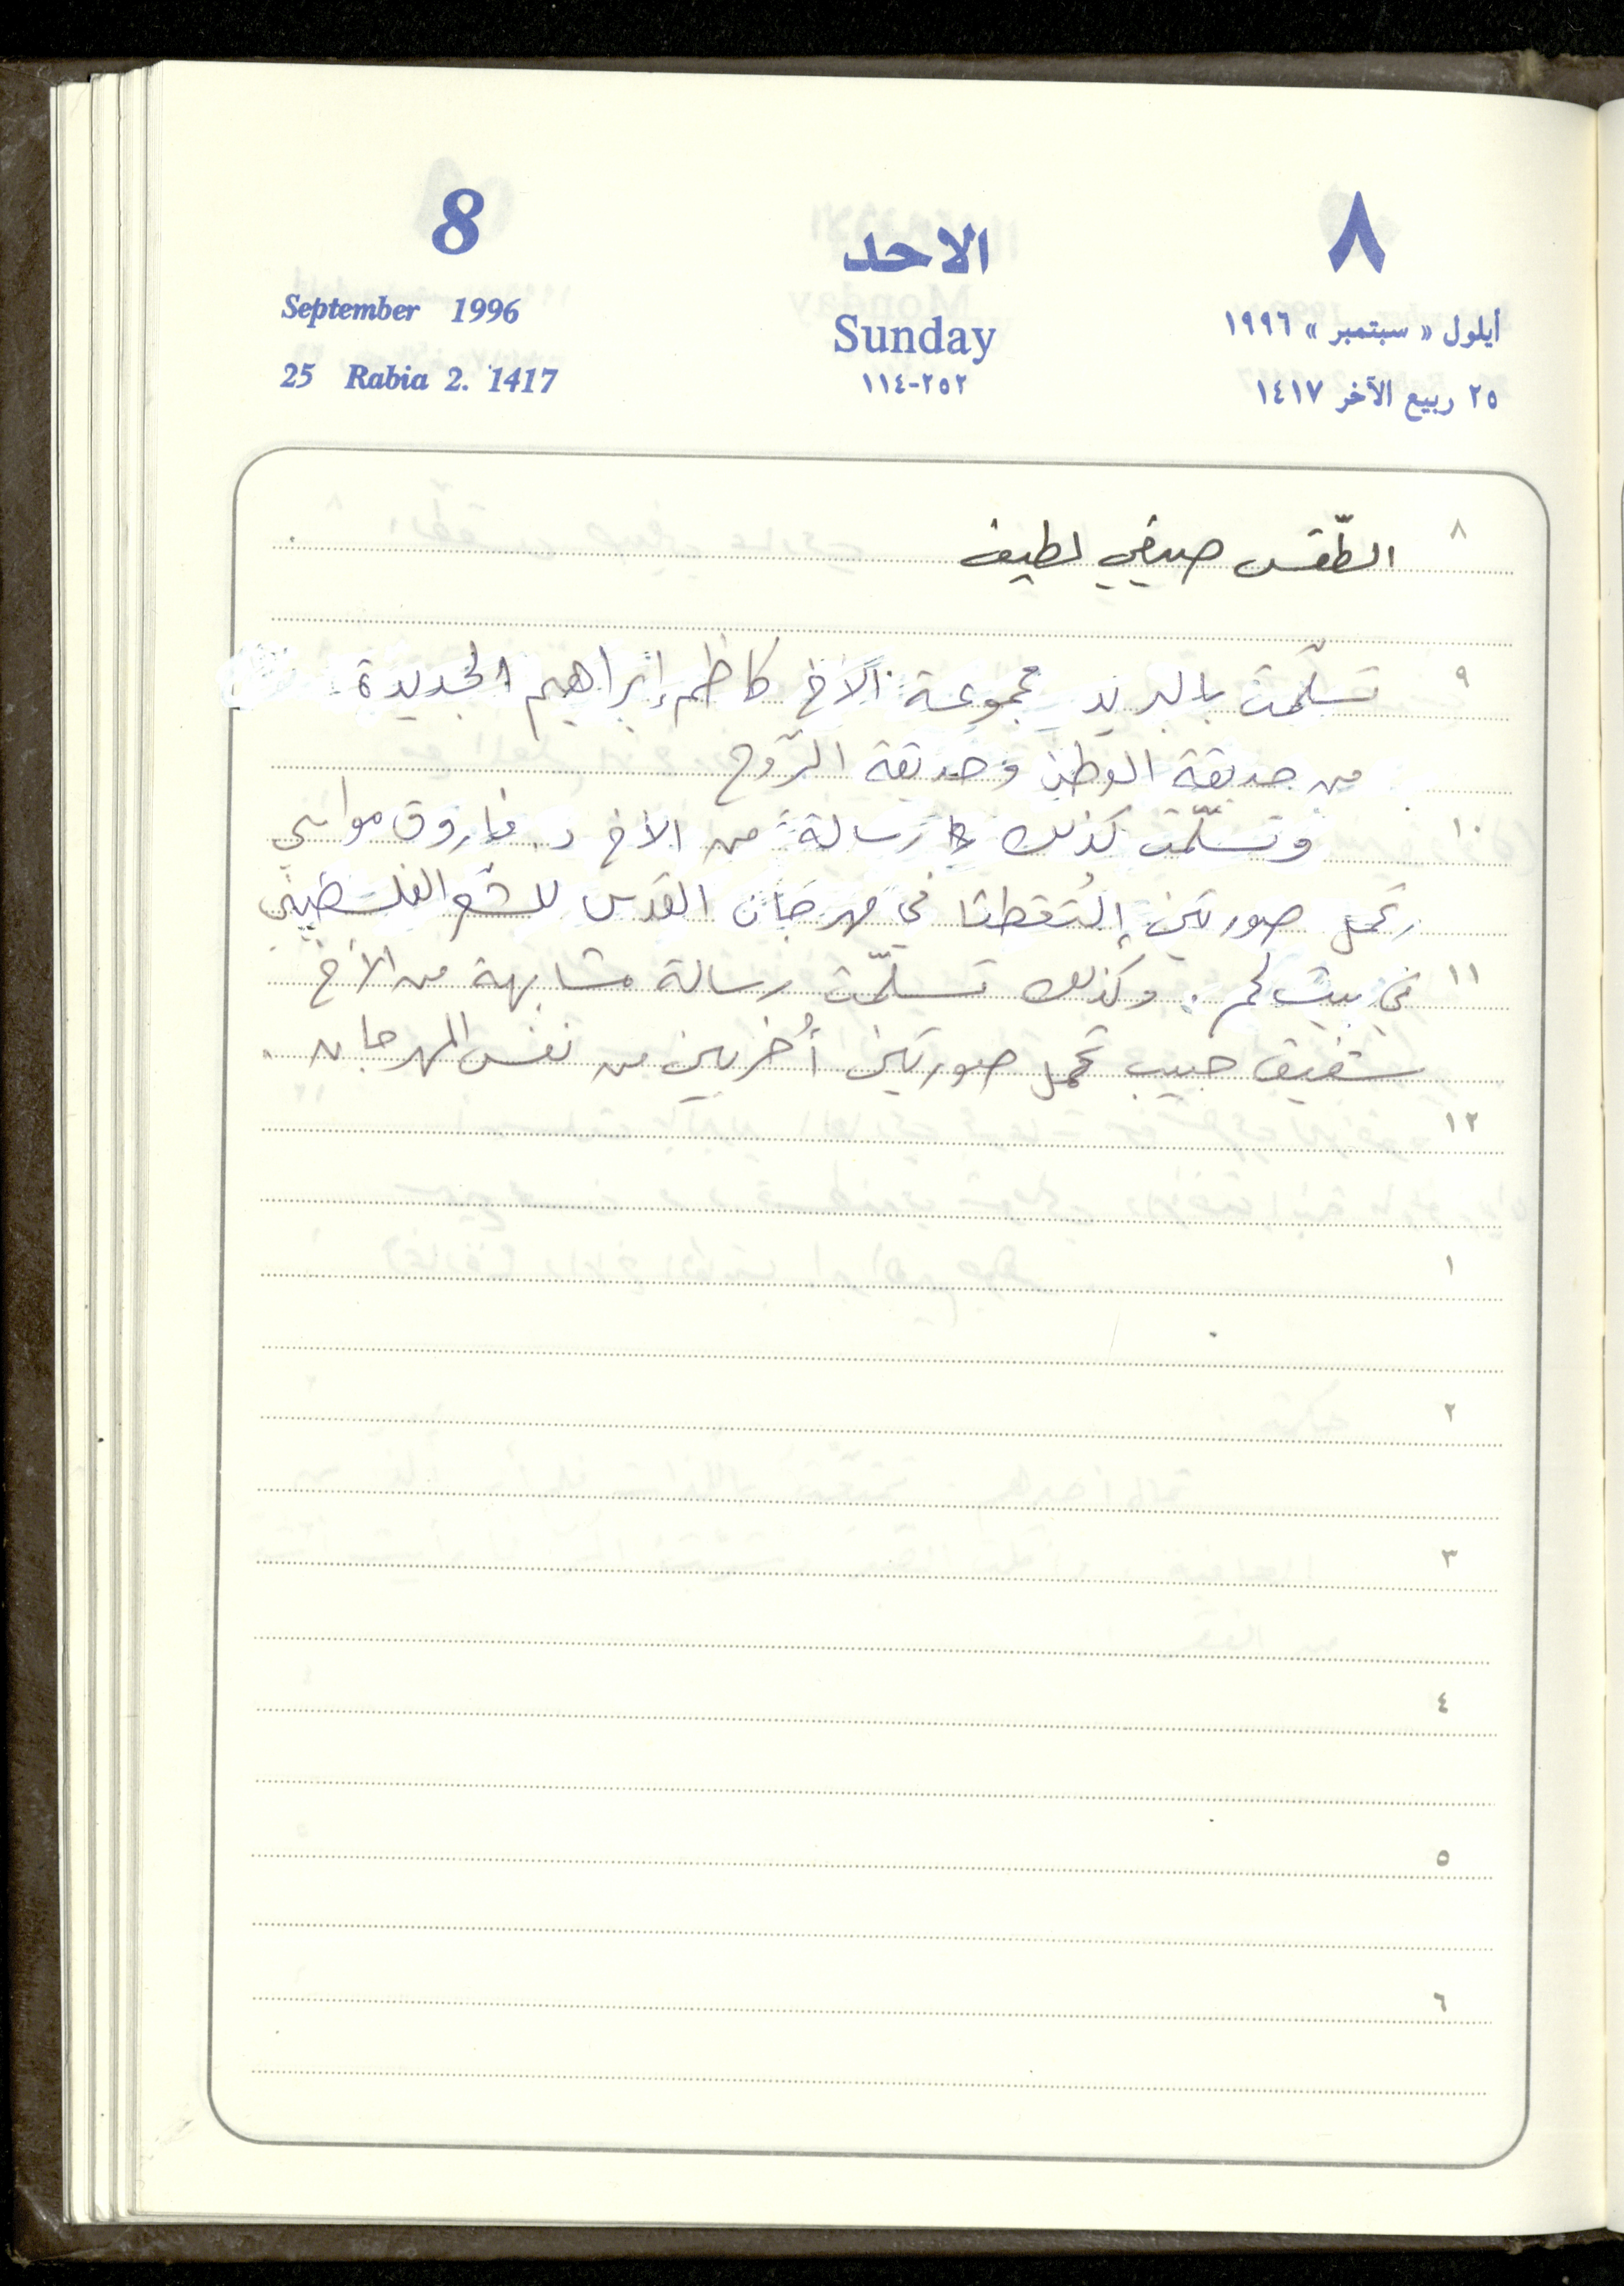 8
الاحد
٨
September 1996
Sunday
أيلول « سبتمبر » ١٩٩٦
25 Rabia 2. 1417
٢٥٢-١١٤
٢٥ ربيع الآخر ١٤١٧
٨
الطّقس صيفي لطيف
٩
تسلّمت بالبريد مجموعة الأخ كاظم إبراهيم الجديدة
من حديقة الوطن وحديقة الرّوح
١٠
وتسلّمت كذلك رسالة من الأخ د. فاروق مواسي
تحمل صورتين إلتُقطتا في مهرجان القدس للشعر الفلسطيني
١١
في بيت لحم. وكذلك تسلّمت رسالة مشابهة من الأخ
شفيق حبيب تحمل صورتين أُخريين من نفس المهرجان.
١٢
١
٢
٣
٤
٥
٦